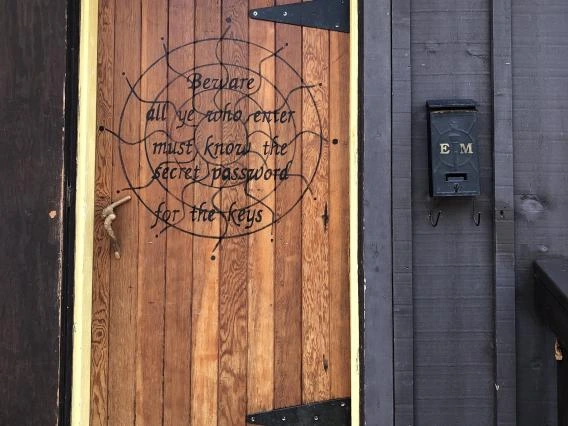 Beware
all ye who enter
must know the
secret password
for the keys
E M